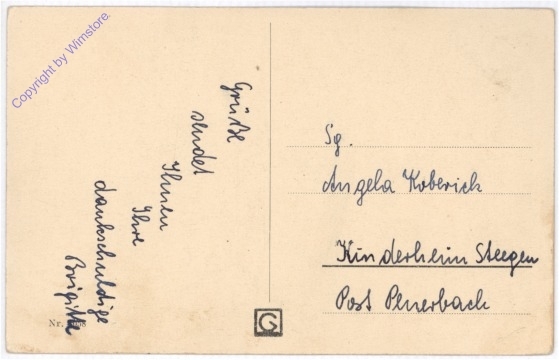 Copyright by Wimstore.
Grüße
sendet
Ihnen
Ihre
dankschuldige
Brigitte
Nr.
G
Sg.
Angela Koberich
Kinderheim Steegen
Post Peuerbach